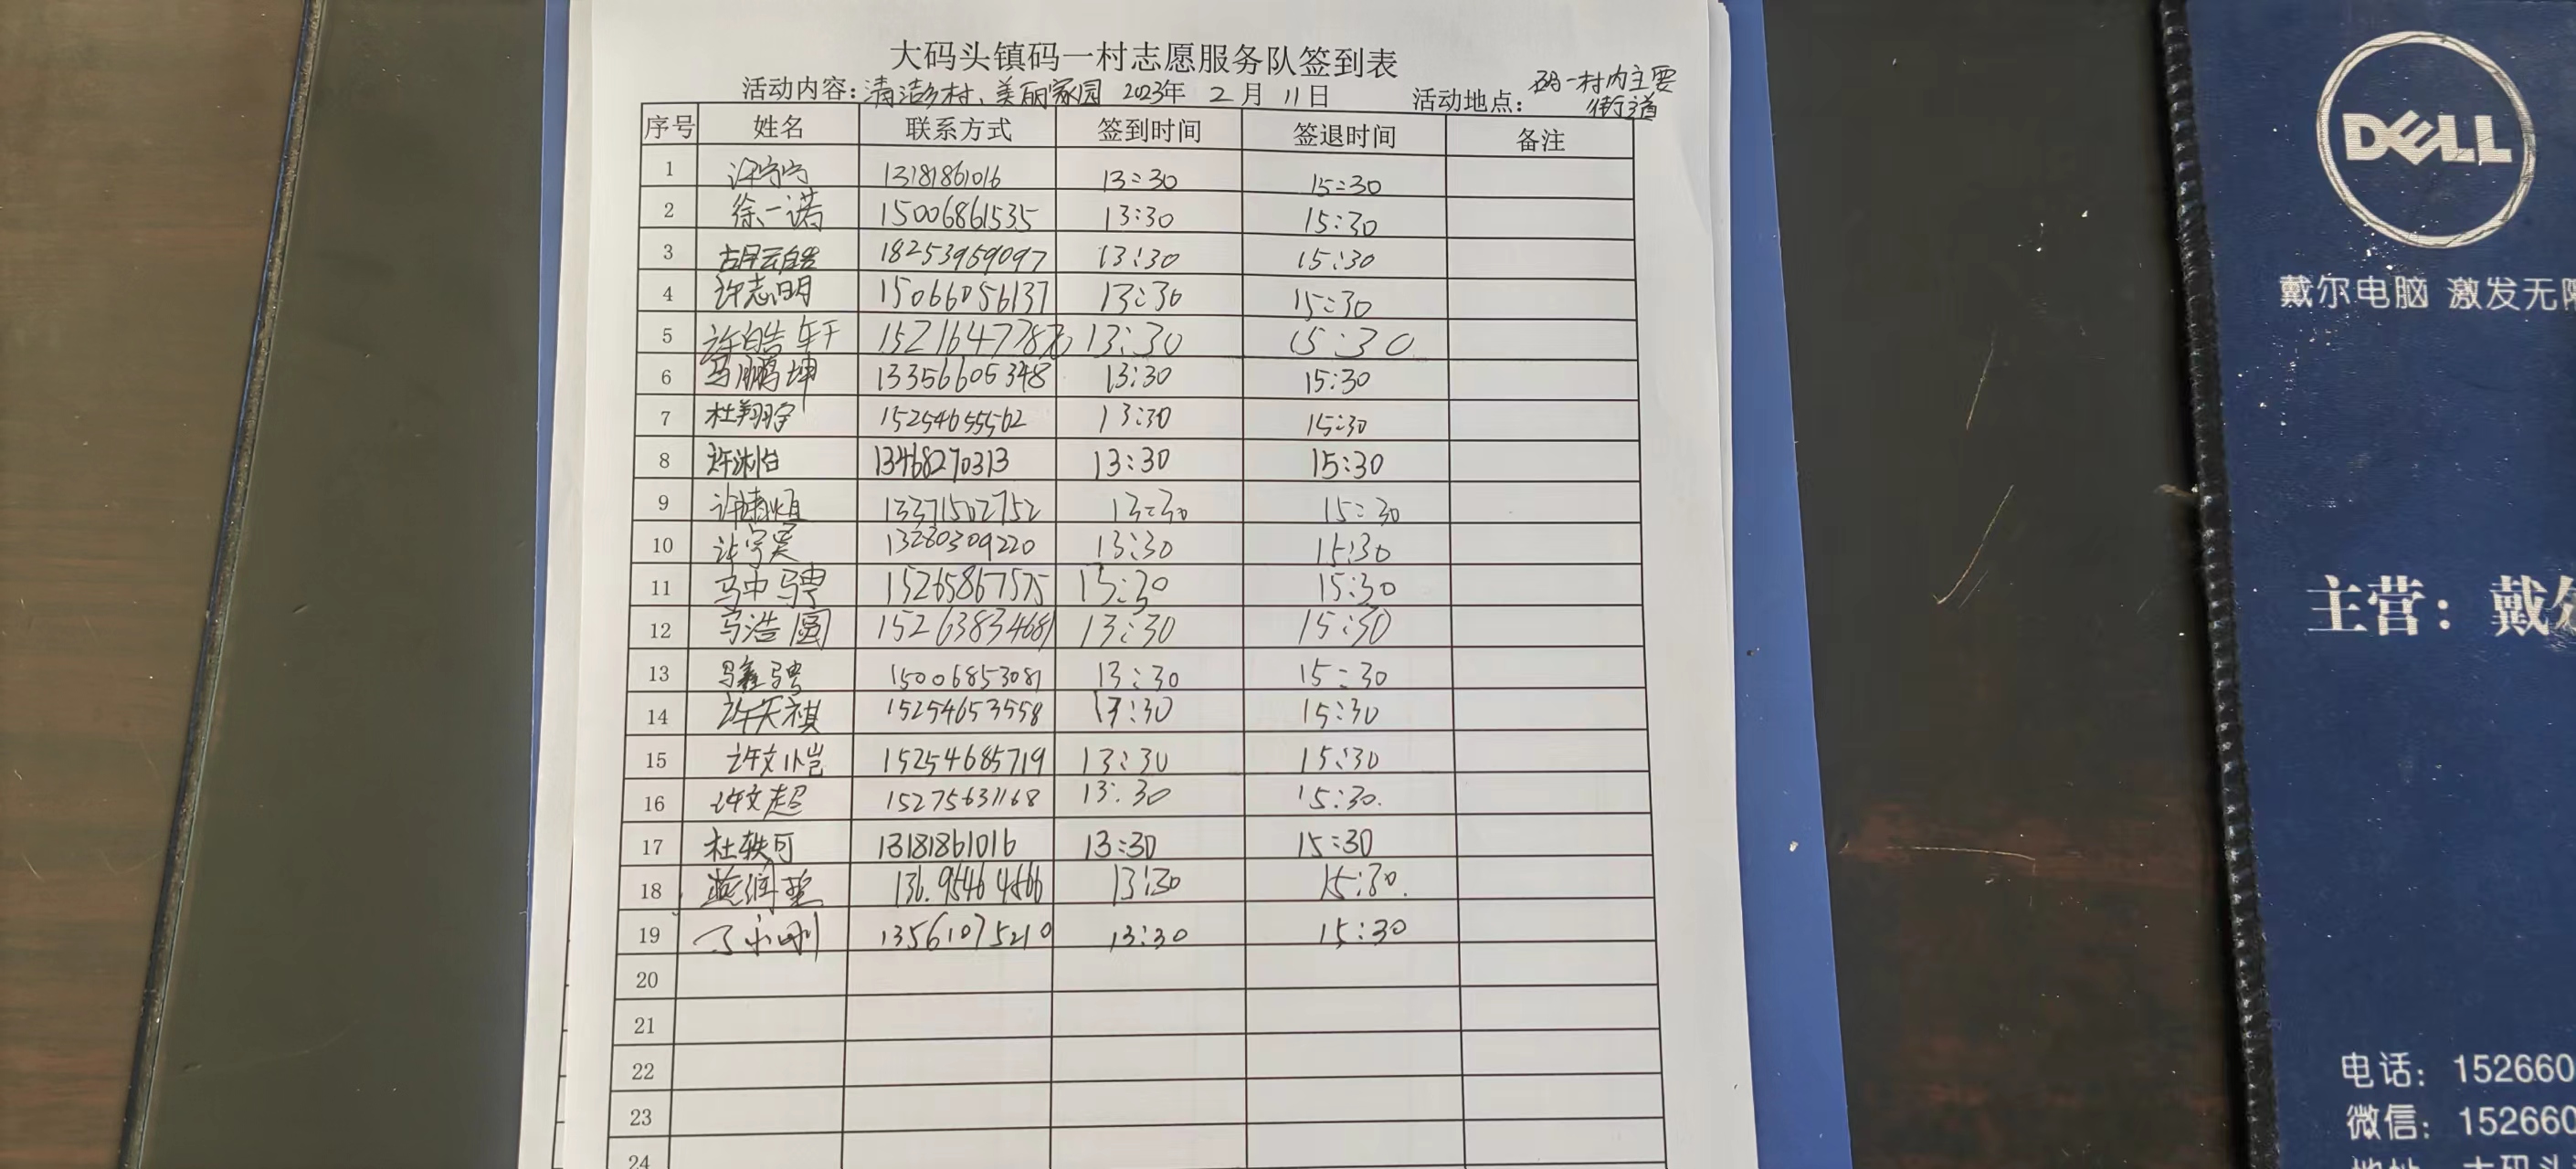 大码头镇码一村志愿服务队签到表
活动内容:清澎村、美丽家园 2023年 2 月 11 日 活动地点: 码一村内主要
街道
序号 姓名 联系方式 签到时间 签退时间 备注
1 许宁宁 13181861016 13:30 15:30
2 徐一诺 15006861535 13:30 15:30
3 胡云皓 18253969097 13:30 15:30
4 许志明 15066056137 13:30 15:30
5 许皓轩 13:30 15:30
6 马鹏坤 13356605348 13:30 15:30
7 杜翔宇 15254655562 13:30 15:30
8 许沐怡 13468270313 13:30 15:30
9 13371502752 13:30 15:30
10 许宁昊 13280309220 13:30 15:30
11 马中骋 15265867575 13:30 15:30
12 马浩圆 15263834681 13:30 15:30
13 马鑫骋 15006853081 13:30 15:30
14 许天祺 15254653558 13:30 15:30
15 许文恺 15254685719 13:30 15:30
16 许文超 15275631168 13:30 15:30
17 杜轶可 13181861016 13:30 15:30
18 13:30 15:30
19 丁小刚 13561075210 13:30 15:30
20
21
22
23
24
DELL
戴尔电脑 激发无限
主营:戴尔
电话:152660
微信:152660